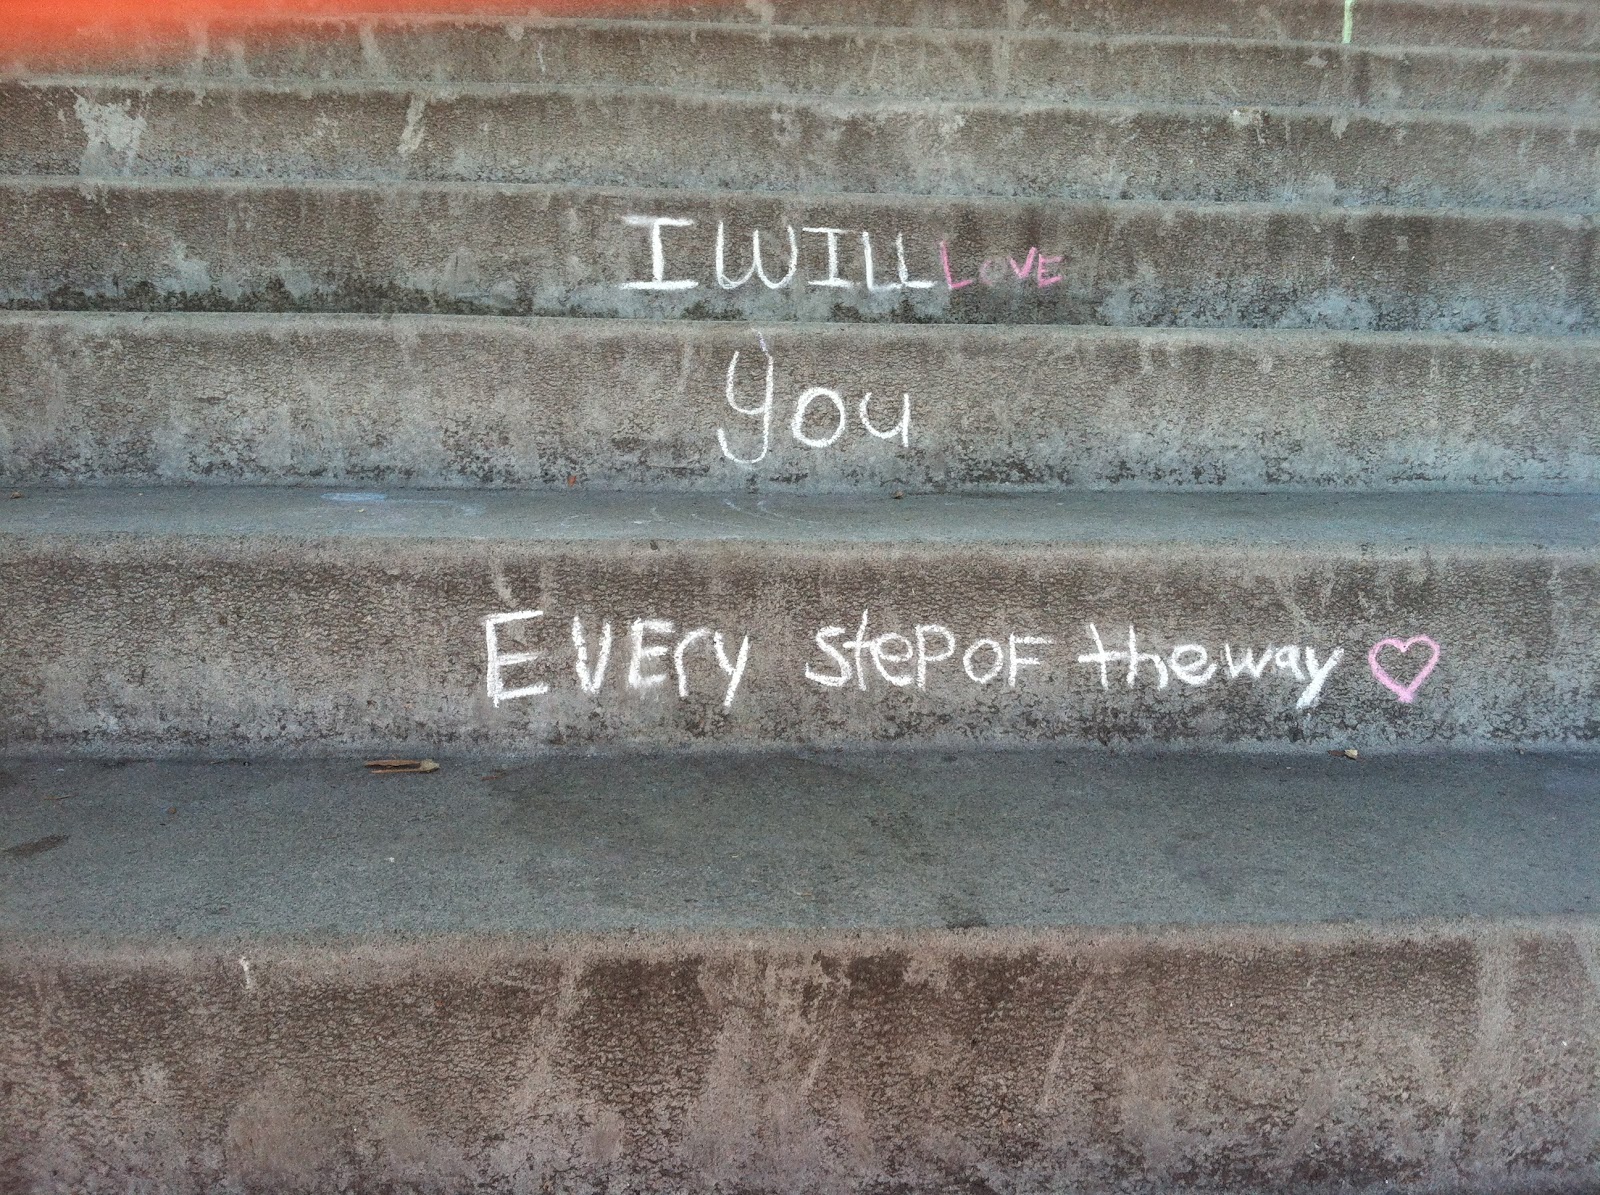 I WILL LOVE
you
EVEry steP OF the way